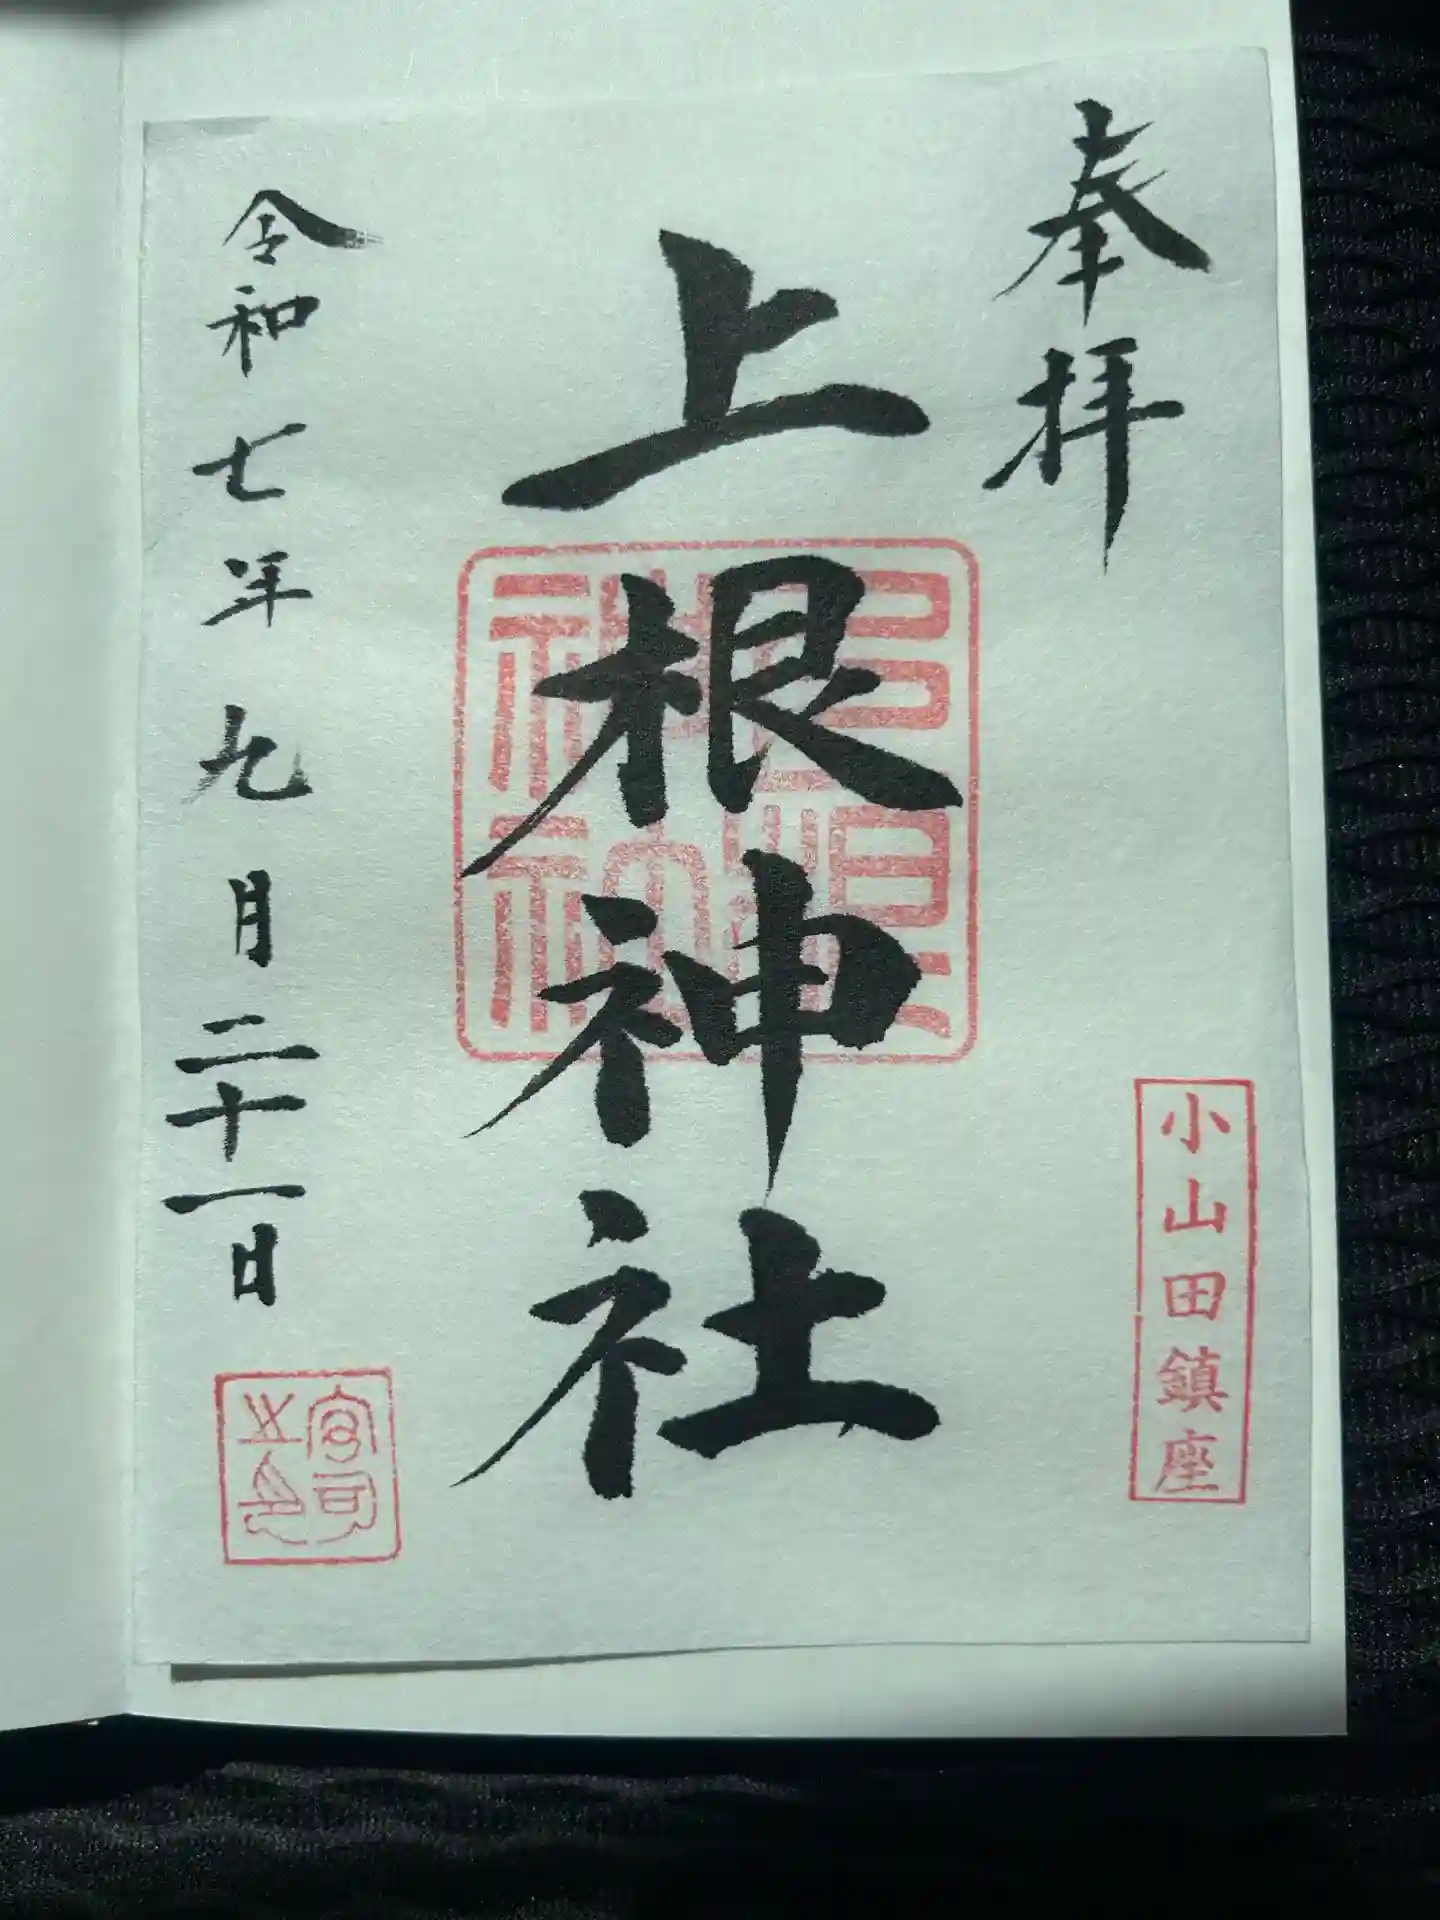 奉拝
小山田鎮座
上根神社
上根神社
令和七年九月二十一日
宮司之印